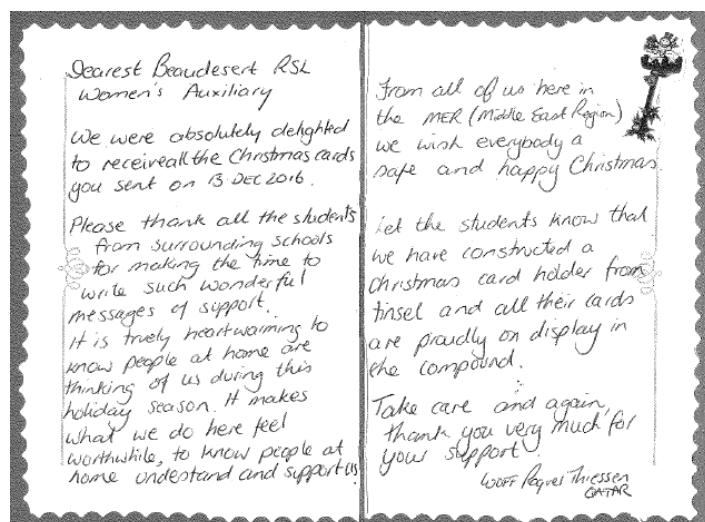 Dearest Beaudesert RSL
Women's Auxiliary
We were absolutely delighted
to receive all the Christmas cards
you sent on 13 DEC 2016.
Please thank all the students
from surrounding schools
for making the time to
write such wonderful
messages of support.
It is truely heartwarming to
know people at home are
thinking of us during this
holiday season. It makes
what we do here feel
worthwhile, to know people at
home understand and support us.
From all of us here in
the MER (Middle East Region)
we wish everybody a
safe and happy Christmas.
Let the students know that
we have constructed a
Christmas card holder from
tinsel and all their cards
are proudly on display in
the compound.
Take care and again,
thank you very much for
your support.
WOFF Thiessen
QATAR